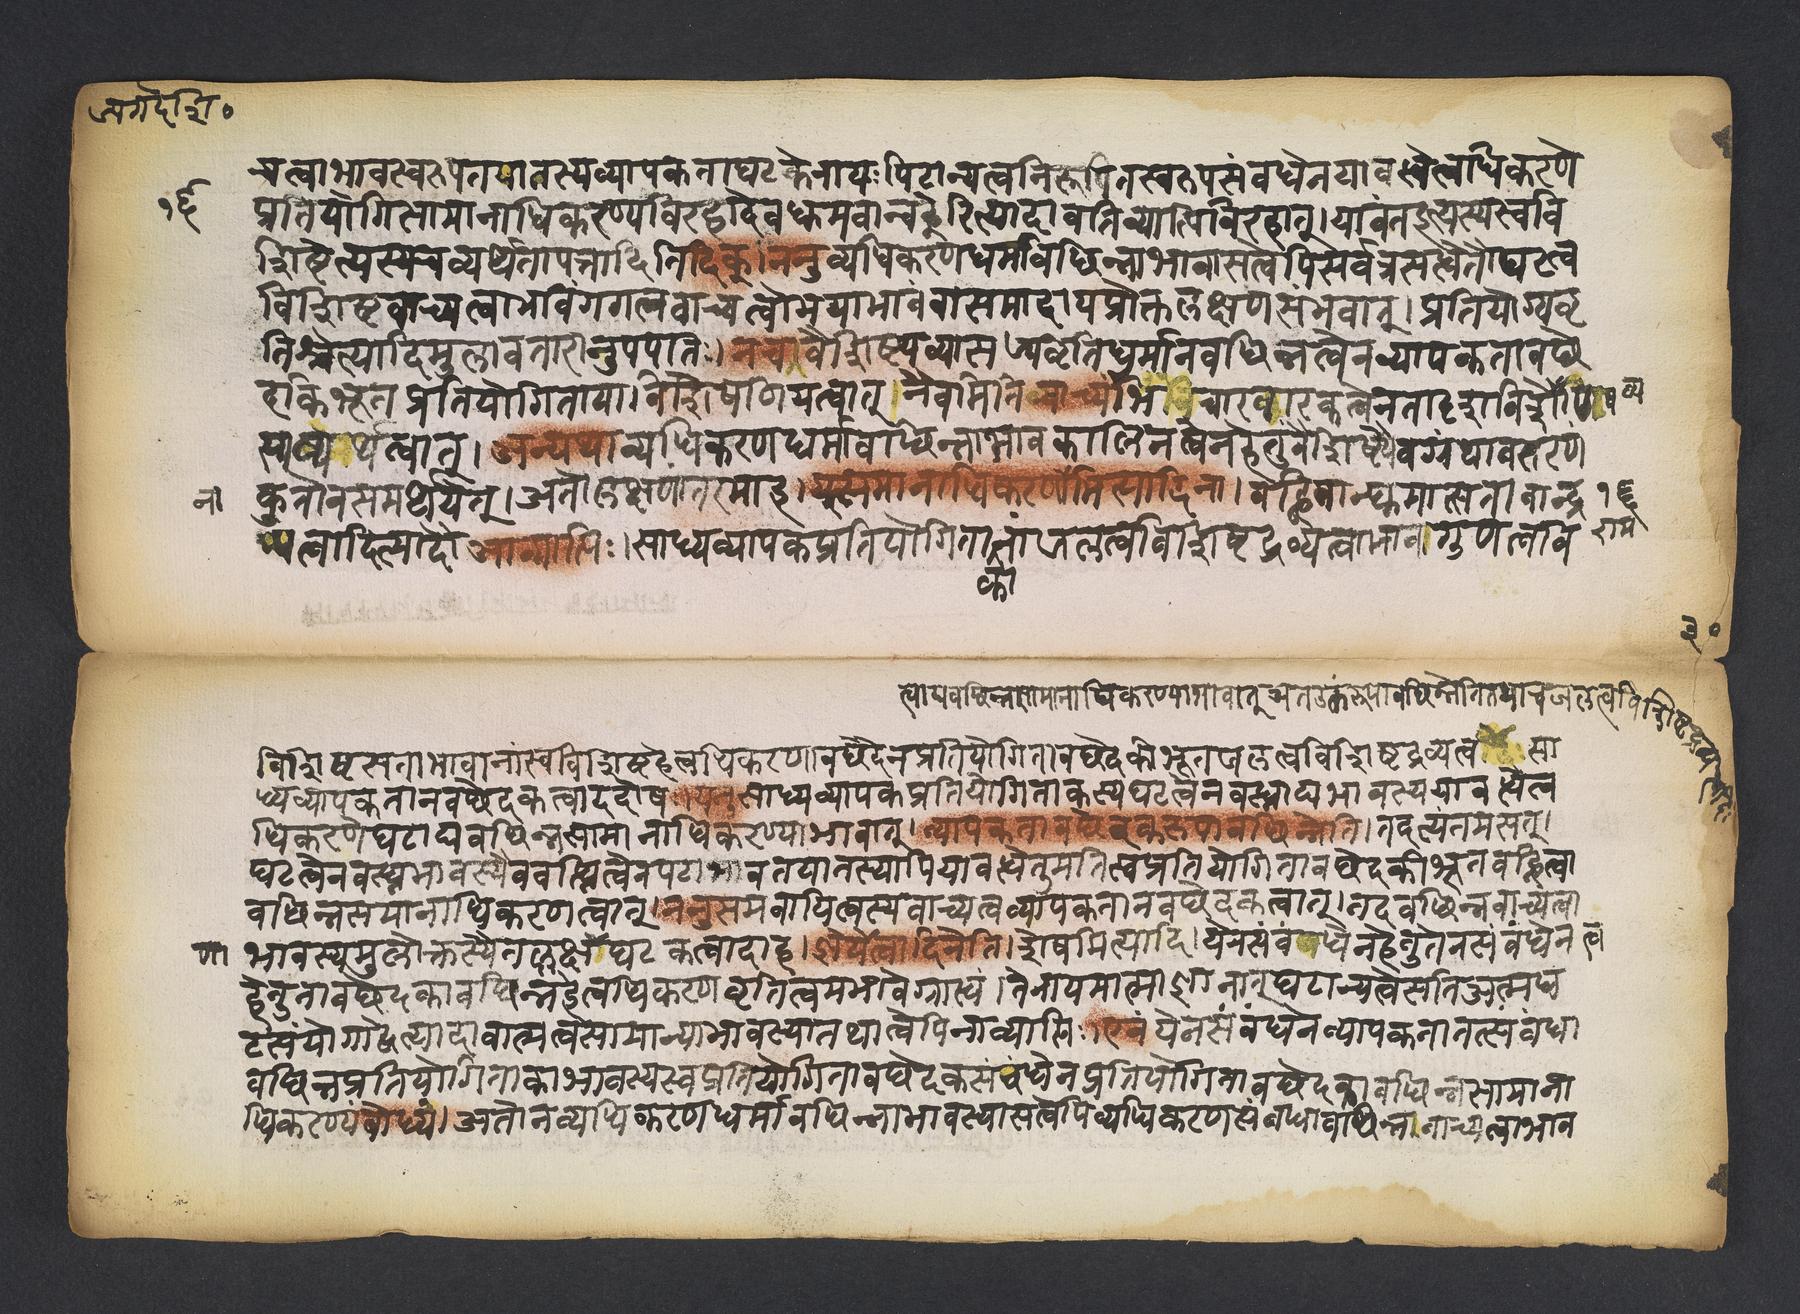 जगदेशि०
१६
चत्वाभावस्वरूपतयातस्यव्यापकताघटकेनायःपिंटान्यत्वनिरूपितस्वरूपसंबधेनयावत्वेत्वधिकरणे
प्रतियोगिसामानाधिकरण्यविरहादेवधूमवान्वह्नेरित्यादावतिव्याप्तिविरहात्।यावंतइत्यस्यस्ववि
शिष्टेत्यस्यचव्यर्थतापत्तादितिदिक्।ननुव्यधिकरणधर्मावछिन्नाभावासत्वेपिसर्वत्रसत्वेनोघटत्व
विशिष्टवाच्यत्वाभावंगगनवाच्यत्वोभयाभावंवासमादायप्रोक्तलक्षणसंभवात्।प्रतियोग्यवृ
तिश्चेत्यादिमुलावतारानुपपातिः।नचवैशिष्ट्यव्यासज्यवृतिधर्मानवछिन्नत्वेनव्यापकतावछे
दकिभूतप्रतियोगिताया।विशेषणियत्वात्।नैवमितिवाच्यंभिचारवारकत्वेनतादृशविशे
स्यव्यर्थत्वात्।अन्यथाव्यधिकरणधर्मावछिन्नाभाव
कुतोनसमर्थयेत्।अतोलक्षणांतरमाह।यत्समानाधिकरणेमित्यादिना।वह्निमान्धूमात्सतावान्द्र
ना
१६
राम
व्यत्वादित्यादौअव्याप्तिः।साध्यव्यापकप्रतियोगिताजलत्वविशिष्टद्रव्यत्वाभावगुणत्ववि
का
३०
त्वाद्यवछिन्नसामानाधिकरण्याभावात्अतउक्तरूपावछिन्नेतितथाचजलत्ववि
विशिष्टसताभावानांस्वविशिष्टहेत्वधिकरणावछेदेनप्रतियोगितावछेदकीभूतजलत्वविशिष्टद्रव्यत्वसा
ध्यव्यापकतानवछेदकत्वाददोषःयतुसाध्यव्यापकप्रतियोगिताकस्यघटत्वेनवस्त्वाद्यभावस्ययावत्धेत्व
धिकरणेघटाद्यवछिन्नसामानाधिकरण्याभावात्।व्यापकतावछेदकरूपावछिन्नेति।तदत्यंतमसत्।
घटत्वेनवस्त्वभावस्यैववह्नित्वेनपटाभावतयातस्यापियावत्धेतुमतिस्वप्रतियोगितावछेदकीभूतवह्नित्वा
वछिन्नसमानाधिकरणत्वात्।ननुसमवायित्वस्यवाच्यत्वव्यापकतानवछेदकत्वात्।तदवछिन्नवाच्यत्वा
णा
भावस्यमुलोक्तस्यैतल्लक्षघटकत्वादाह।ज्ञेयत्वादिनेति।शेषमित्यादि।येनसंबंधेनहेतुतेनसंबंधेन
हेतुतावछेदकावछिन्नहेत्वधिकरणवृतित्वमभावेग्राह्यं।तेनायमात्माज्ञानात्घटान्यत्वेसतिआत्मघ
टसंयोगाद्वेत्यादावात्मत्वसामान्याभावस्यातथात्वेपिनाव्याप्तिः।एवंयेनसंबंधेनव्यापकतातत्संबंधा
वछिन्नप्रतियोगिताकाभावस्यस्वप्रतियोगितावछेदकसंबंधेनप्रतियोगितावछेदकावछिन्नसामाना
धिकरण्यंबोध्यं।अतोनव्यधिकरणधर्मावछिन्नाभावस्यासत्वेपिव्यधिकरणसंबंधावछिन्नवाच्यत्वाभाव